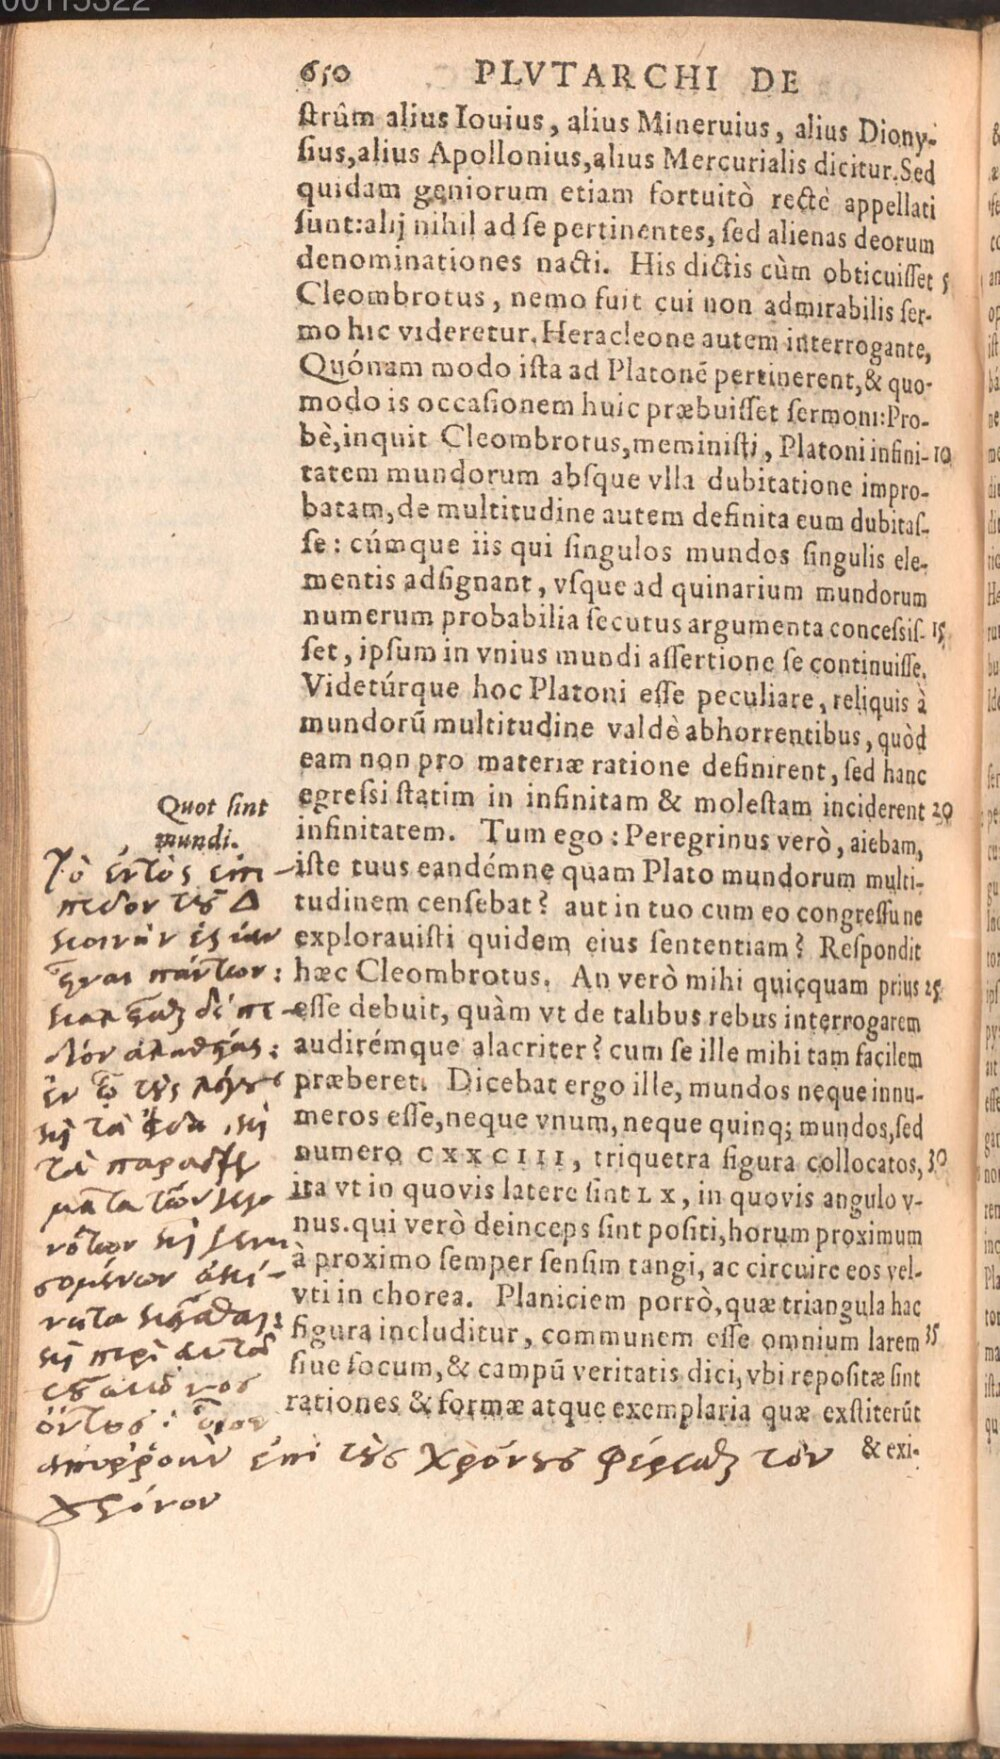 00115322
650 PLVTARCHI DE
strûm alius Iouius, alius Mineruius, alius Diony-
sius, alius Apollonius, alius Mercurialis dicitur. Sed
quidam geniorum etiam fortuitò rectè appellati
sunt: alij nihil ad se pertinentes, sed alienas deorum
denominationes nacti. His dictis cùm obticuisset 5
Cleombrotus, nemo fuit cui non admirabilis ser-
mo hic videretur. Heracleone autem interrogante,
Quónam modo ista ad Platonē pertinerent, & quo-
modo is occasionem huic præbuisset sermoni: Pro-
bè, inquit Cleombrotus, meministi, Platoni infini- 10
tatem mundorum absque vlla dubitatione impro-
batam, de multitudine autem definita eum dubitas-
se: cúmque iis qui singulos mundos singulis ele-
mentis adsignant, vsque ad quinarium mundorum
numerum probabilia secutus argumenta concessis- 15
set, ipsum in vnius mundi assertione se continuisse.
Videtúrque hoc Platoni esse peculiare, reliquis à
mundorū multitudine valdè abhorrentibus, quòd
eam non pro materiæ ratione definirent, sed hanc
egressi statim in infinitam & molestam inciderent 20
infinitatem. Tum ego: Peregrinus verò, aiebam,
iste tuus eandémne quam Plato mundorum multi-
tudinem censebat? aut in tuo cum eo congressu ne
explorauisti quidem eius sententiam? Respondit
hæc Cleombrotus. An verò mihi quicquam prius 25
esse debuit, quàm vt de talibus rebus interrogarem
audirémque alacriter? cum se ille mihi tam facilem
præberet. Dicebat ergo ille, mundos neque innu-
meros esse, neque vnum, neque quinq; mundos, sed
numero CXXCIII, triquetra figura collocatos, 30
ita vt in quovis latere sint LX, in quovis angulo v-
nus. qui verò deinceps sint positi, horum proximum
à proximo semper sensim tangi, ac circuire eos vel-
vti in chorea. Planiciem porrò, quæ triangula hac
figura includitur, communem esse omnium larem 35
siue focum, & campū veritatis dici, vbi repositæ sint
rationes & formæ atque exemplaria quæ exstiterūt
& exi-
Quot sint
mundi.
Τὸ ἐντὸς ἐπί-
πεδον τοῦ Δ
κοινὴν ἑστίαν
εἶναι πάντων:
καλεῖσθαι δὲ πε-
δίον ἀληθείας:
ἐν ᾧ τοὺς λόγους
καὶ τὰ εἴδη, καὶ
τὰ παραδείγ
ματα τῶν γεγο
νότων καὶ γενη
σομένων ἀκί-
νητα κεῖσθαι:
καὶ περὶ αὐτὰ
τοῦ αἰῶνος
ὄντος: οἷον
ἀπορροὴν ἐπὶ τοὺς χρόνους φέρεσθαι τὸν
χρόνον